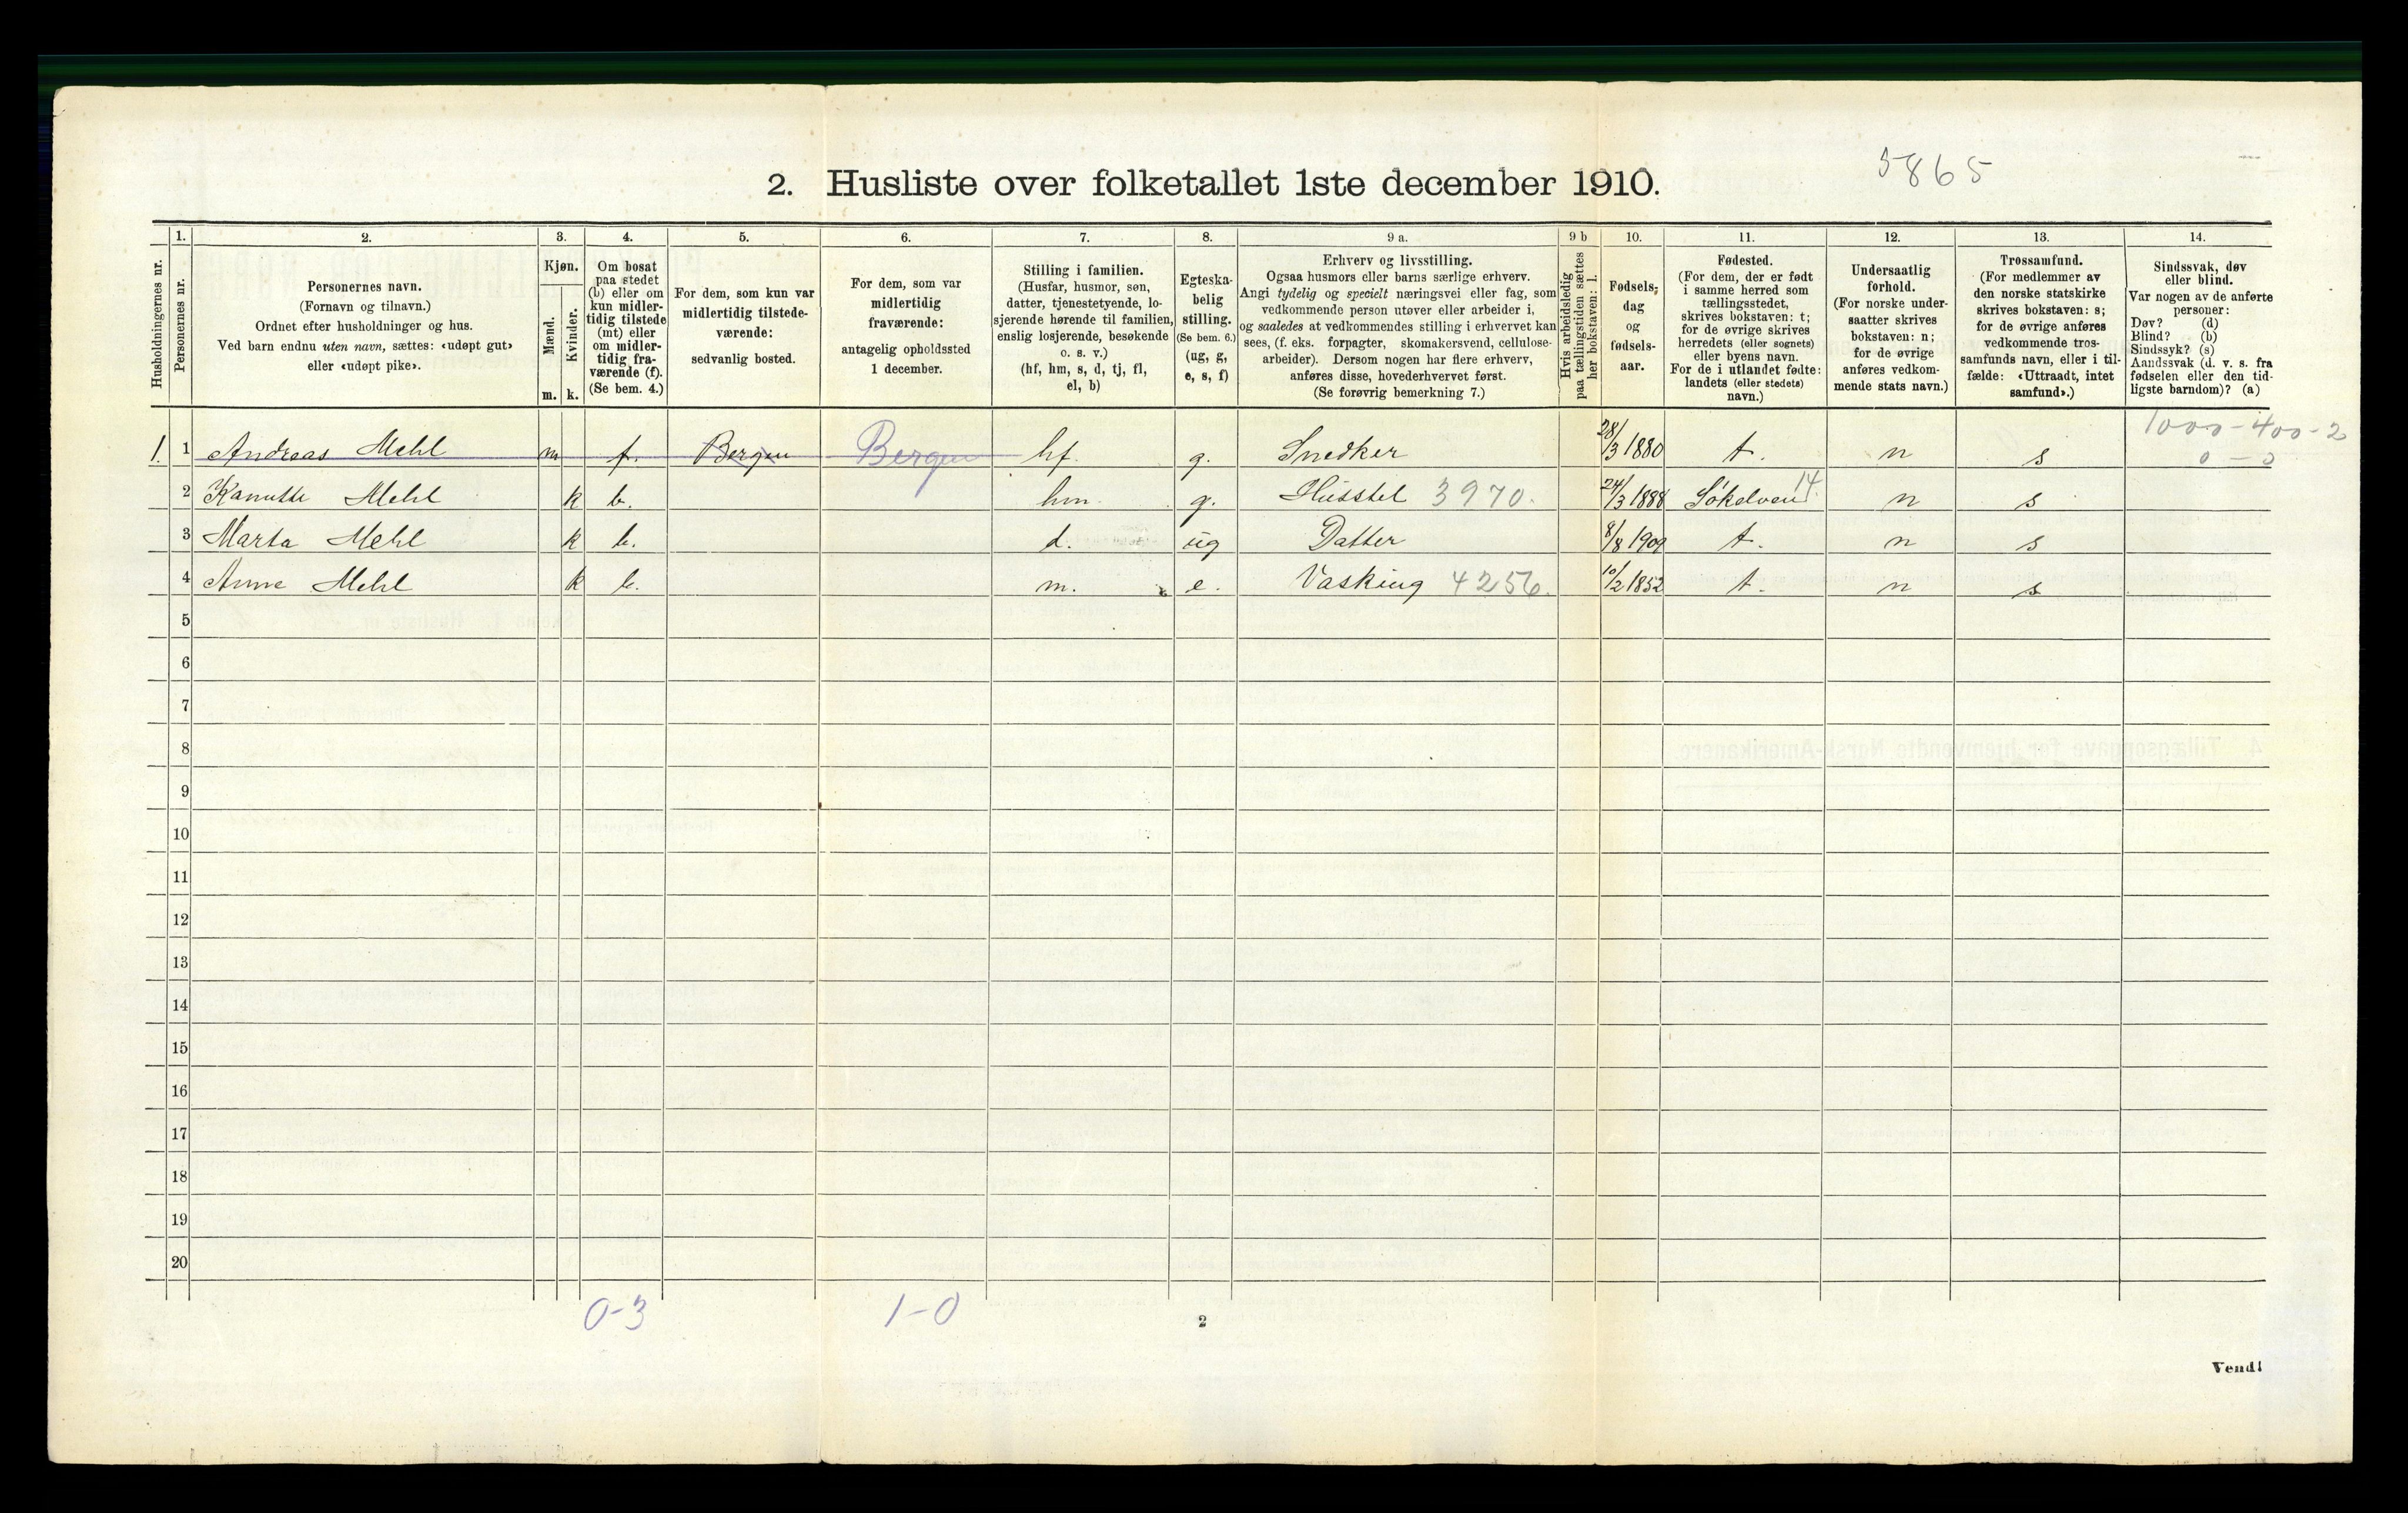 5865
2. Husliste over folketallet 1ste december 1910.
Husholdningernes nr.
1. 2. 3. 4. 5. 6. 7. 8. 9 a. 9 b 10. 11. 12. 13. 14.
Personernes nr.
Personernes navn.
(Fornavn og tilnavn.)
Ordnet efter husholdninger og hus.
Ved barn endnu uten navn, sættes: «udøpt gut»
eller «udøpt pike».
Kjøn.
Mænd.
Kvinder.
m. k.
Om bosat
paa stedet
(b) eller om
kun midler-
tidig tilstede
(mt) eller
om midler-
tidig fra-
værende (f).
(Se bem. 4.)
For dem, som kun var
midlertidig tilstede-
værende:
sedvanlig bosted.
For dem, som var
midlertidig
fraværende:
antagelig opholdssted
1 december.
Stilling i familien.
(Husfar, husmor, søn,
datter, tjenestetyende, lo-
sjerende hørende til familien,
enslig losjerende, besøkende
o. s. v.)
(hf, hm, s, d, tj, fl,
el, b)
Egteska-
belig
stilling.
(Se bem. 6.)
(ug, g,
e, s, f)
Erhverv og livsstilling.
Ogsaa husmors eller barns særlige erhverv.
Angi tydelig og specielt næringsvei eller fag, som
vedkommende person utøver eller arbeider i,
og saaledes at vedkommendes stilling i erhvervet kan
sees, (f. eks. forpagter, skomakersvend, cellulose-
arbeider). Dersom nogen har flere erhverv,
anføres disse, hovederhvervet først.
(Se forøvrig bemerkning 7.)
Hvis arbeidsledig
paa tællingstiden sættes
her bokstaven: l.
Fødsels-
dag
og
fødsels-
aar.
Fødested.
(For dem, der er født
i samme herred som
tællingsstedet,
skrives bokstaven: t;
for de øvrige skrives
herredets (eller sognets)
eller byens navn.
For de i utlandet fødte:
landets (eller stedets)
navn.)
Undersaatlig
forhold.
(For norske under-
saatter skrives
bokstaven: n;
for de øvrige
anføres vedkom-
mende stats navn.)
Trossamfund.
(For medlemmer av
den norske statskirke
skrives bokstaven: s;
for de øvrige anføres
vedkommende tros-
samfunds navn, eller i til-
fælde: «Uttraadt, intet
samfund».)
Sindssvak, døv
eller blind.
Var nogen av de anførte
personer:
Døv? (d)
Blind? (b)
Sindssyk? (s)
Aandssvak (d. v. s. fra
fødselen eller den tid-
ligste barndom)? (a)
1000-400-2
0-0
1. 1 Andreas Mehl m f. Bergen Bergen hf. g. Snedker 28/3 1880 t. n s
2 Kanutte Mehl k b. hm. g. Husstel 3970. 24/3 1888 Søkelven 14 n s
3 Marta Mehl k b. d. ug Datter 8/8 1909 t. n s
4 Anne Mehl k b. m. e. Vasking 4256. 10/2 1852 t. n s
5
6
7
8
9
10
11
12
13
14
15
16
17
18
19
20
0-3 1-0
2
Vend!